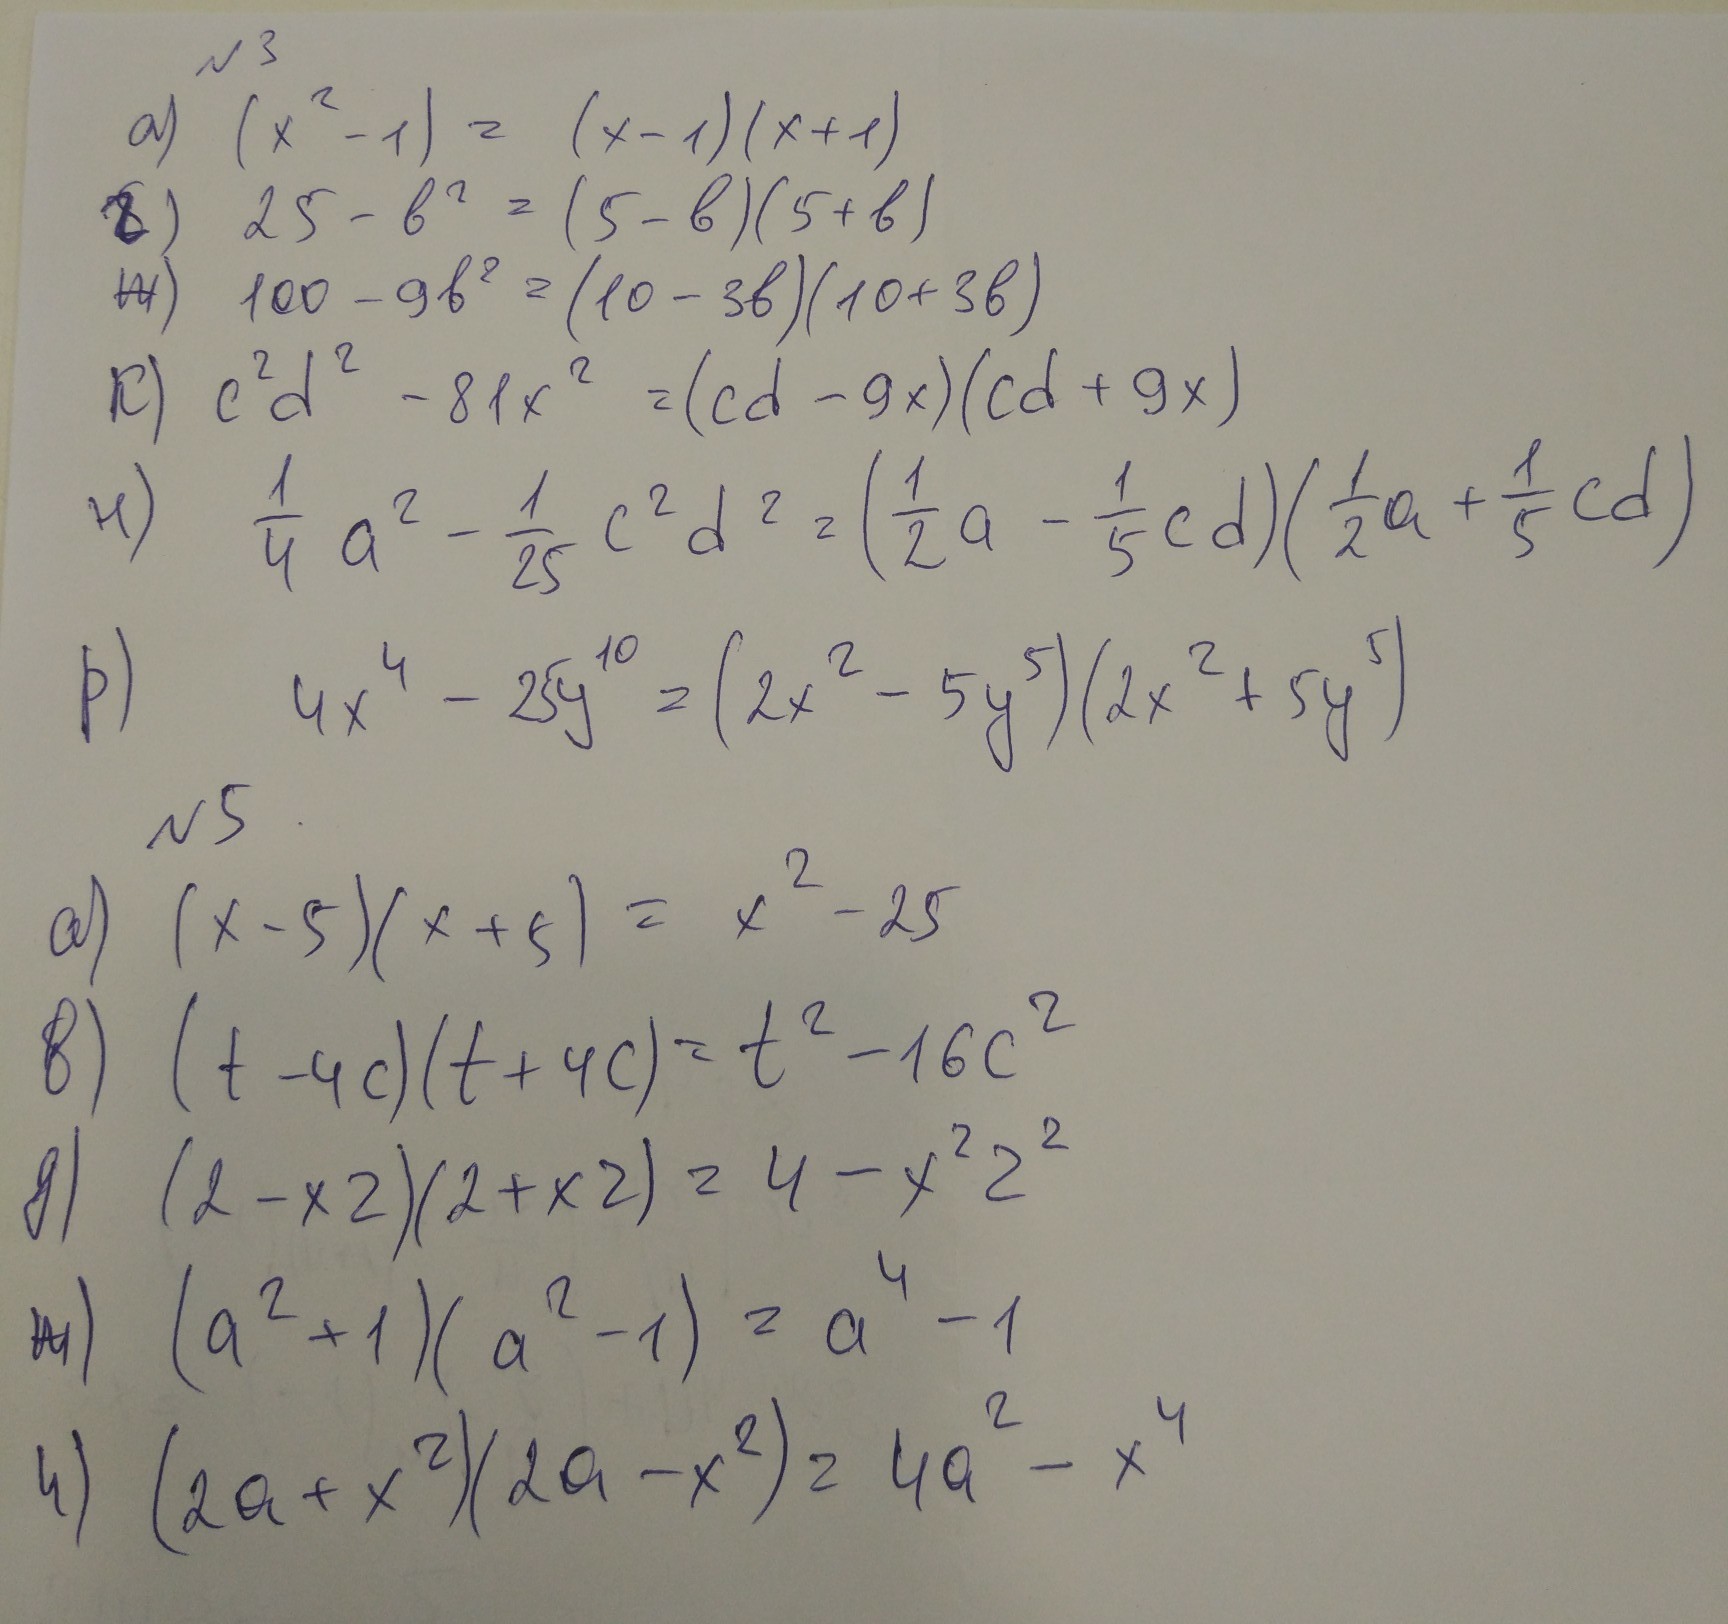 №3
а) (x² - 1) = (x - 1)(x + 1)
25 - b² = (5 - b)(5 + b)
ж) 100 - 9b² = (10 - 3b)(10 + 3b)
к) c²d² - 81x² = (cd - 9x)(cd + 9x)
н) 1/4 a² - 1/25 c²d² = (1/2 a - 1/5 cd)(1/2 a + 1/5 cd)
р) 4x⁴ - 25y¹⁰ = (2x² - 5y⁵)(2x² + 5y⁵)
№5
а) (x - 5)(x + 5) = x² - 25
в) (t - 4c)(t + 4c) = t² - 16c²
д) (2 - xz)(2 + xz) = 4 - x²z²
ж) (a² + 1)(a² - 1) = a⁴ - 1
и) (2a + x²)(2a - x²) = 4a² - x⁴